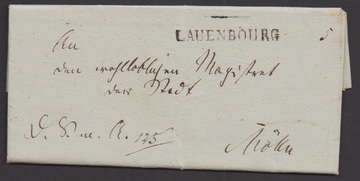 LAUENBOURG
5
An
den wohllöblichen Magistrat
der Stadt
D. S. m. A. 175
Mölln